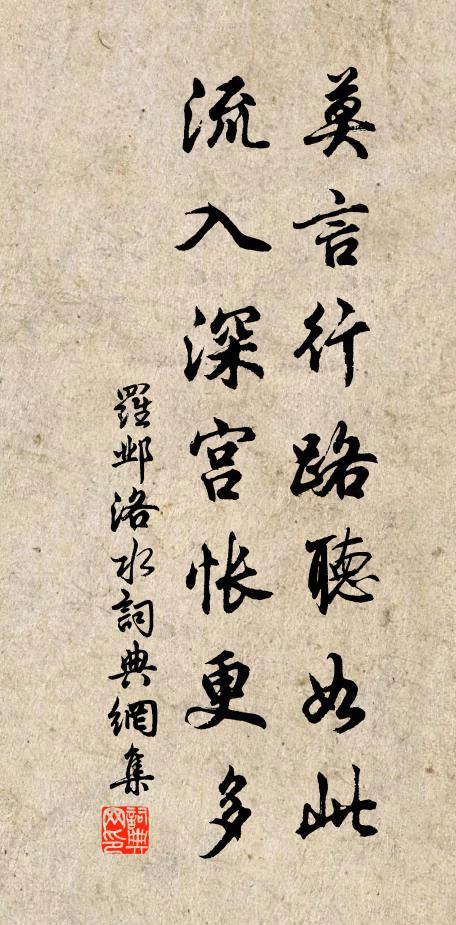 莫言行路聽如此
流入深宮悵更多
羅鄴洛水詞典網集
詞典网印